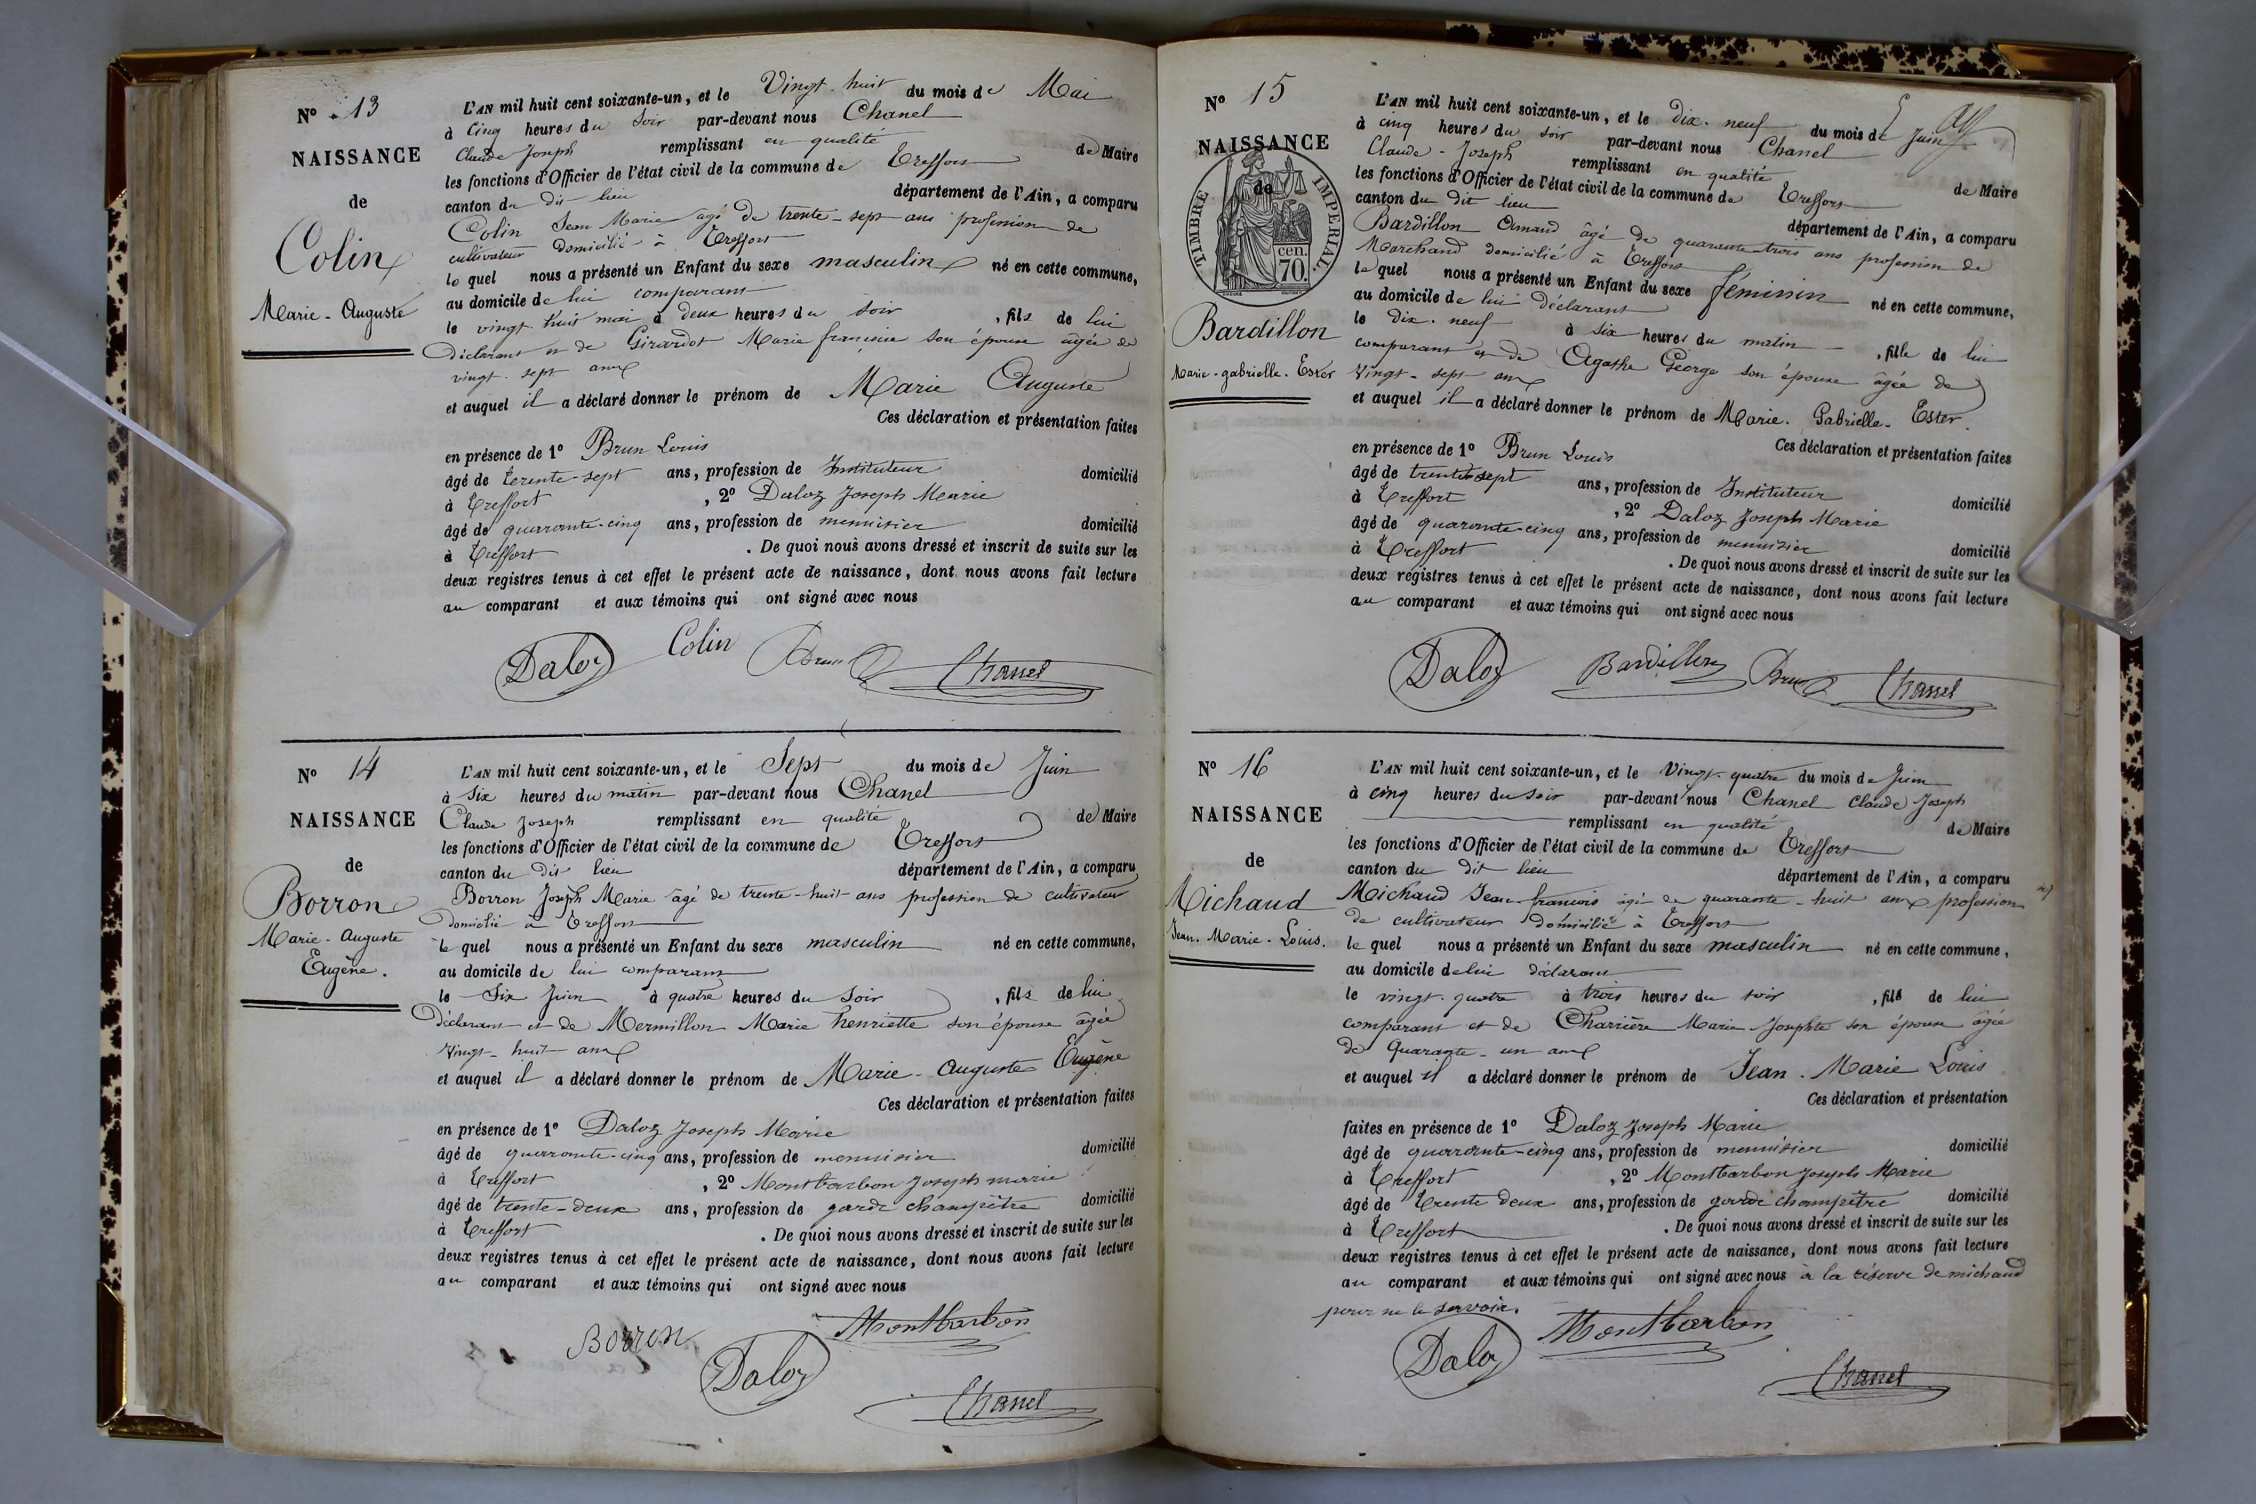 N° 13
NAISSANCE
de
Colin
Marie - Auguste
L'AN mil huit cent soixante-un, et le Vingt-huit du mois de Mai
à Cinq heures du Soir par-devant nous Chanel
Claude Joseph remplissant en qualité de Maire
les fonctions d'Officier de l'état civil de la commune de Treffort
canton du dit lieu département de l'Ain, a comparu
Colin Jean Marie âgé de trente-sept ans profession de
cultivateur domicilié à Treffort
le quel nous a présenté un Enfant du sexe masculin né en cette commune,
au domicile de lui comparant
le vingt huit mai à deux heures du soir , fils de lui
déclarant et de Girardot Marie françoise son épouse âgée de
vingt-sept ans
et auquel il a déclaré donner le prénom de Marie Auguste
Ces déclaration et présentation faites
en présence de 1° Brun Louis
âgé de trente-sept ans, profession de Instituteur domicilié
à Treffort , 2° Daloz Joseph Marie
âgé de quarante-cinq ans, profession de menuisier domicilié
à Treffort . De quoi nous avons dressé et inscrit de suite sur les
deux registres tenus à cet effet le présent acte de naissance, dont nous avons fait lecture
au comparant et aux témoins qui ont signé avec nous
Daloz Colin Brun Chanel
N° 14
NAISSANCE
de
Borron
Marie - Auguste
Eugène.
L'AN mil huit cent soixante-un, et le Sept du mois de Juin
à Six heures du matin par-devant nous Chanel
Claude Joseph remplissant en qualité de Maire
les fonctions d'Officier de l'état civil de la commune de Treffort
canton du dit lieu département de l'Ain, a comparu
Borron Joseph Marie âgé de trente-huit ans profession de cultivateur
domicilié à Treffort
le quel nous a présenté un Enfant du sexe masculin né en cette commune,
au domicile de lui comparant
le Six Juin à quatre heures du Soir , fils de lui
déclarant et de Mermillon Marie henriette son épouse âgée
Vingt-huit ans
et auquel il a déclaré donner le prénom de Marie - Auguste Eugène
Ces déclaration et présentation faites
en présence de 1° Daloz Joseph Marie
âgé de quarante-cinq ans, profession de menuisier domicilié
à Treffort , 2° Montbarbon Joseph marie
âgé de trente-deux ans, profession de garde champêtre domicilié
à Treffort . De quoi nous avons dressé et inscrit de suite sur les
deux registres tenus à cet effet le présent acte de naissance, dont nous avons fait lecture
au comparant et aux témoins qui ont signé avec nous
Borron Daloz Montbarbon
Chanel
N° 15
NAISSANCE
de
TIMBRE IMPERIAL.
cen.
70.
Bardillon
Marie - gabrielle - Ester
L'AN mil huit cent soixante-un, et le dix-neuf du mois de Juin
à cinq heures du soir par-devant nous Chanel
Claude - Joseph remplissant en qualité de Maire
les fonctions d'Officier de l'état civil de la commune de Treffort
canton du dit lieu département de l'Ain, a comparu
Bardillon Amand âgé de quarante-trois ans profession de
Marchand domicilié à Treffort
le quel nous a présenté un Enfant du sexe féminin né en cette commune,
au domicile de lui déclarant
le dix-neuf à six heures du matin , fille de lui
comparant et de Agathe George son épouse âgée de
Vingt-sept ans
et auquel il a déclaré donner le prénom de Marie - Gabrielle - Ester.
Ces déclaration et présentation faites
en présence de 1° Brun Louis
âgé de trente sept ans, profession de Instituteur domicilié
à Treffort , 2° Daloz Joseph Marie
âgé de quarante-cinq ans, profession de menuisier domicilié
à Treffort . De quoi nous avons dressé et inscrit de suite sur les
deux registres tenus à cet effet le présent acte de naissance, dont nous avons fait lecture
au comparant et aux témoins qui ont signé avec nous
Daloz Bardillon Brun Chanel
N° 16
NAISSANCE
de
Michaud
Jean - Marie - Louis.
L'AN mil huit cent soixante-un, et le Vingt-quatre du mois de Juin
à cinq heures du soir par-devant nous Chanel Claude Joseph
remplissant en qualité de Maire
les fonctions d'Officier de l'état civil de la commune de Treffort
canton du dit lieu département de l'Ain, a comparu
Michaud Jean-francois âgé de quarante-huit ans profession
de cultivateur domicilié à Treffort
le quel nous a présenté un Enfant du sexe masculin né en cette commune,
au domicile de lui déclarant
le vingt-quatre à trois heures du soir , fils de lui
comparant et de Charrière Marie Josephte son épouse âgée
de Quarante-un ans
et auquel il a déclaré donner le prénom de Jean - Marie Louis
Ces déclaration et présentation
faites en présence de 1° Daloz Joseph Marie
âgé de quarante-cinq ans, profession de menuisier domicilié
à Treffort , 2° Montbarbon Joseph Marie
âgé de trente deux ans, profession de garde champêtre domicilié
à Treffort . De quoi nous avons dressé et inscrit de suite sur les
deux registres tenus à cet effet le présent acte de naissance, dont nous avons fait lecture
au comparant et aux témoins qui ont signé avec nous à la réserve de michaud
pour ne le savoir.
Daloz Montbarbon
Chanel